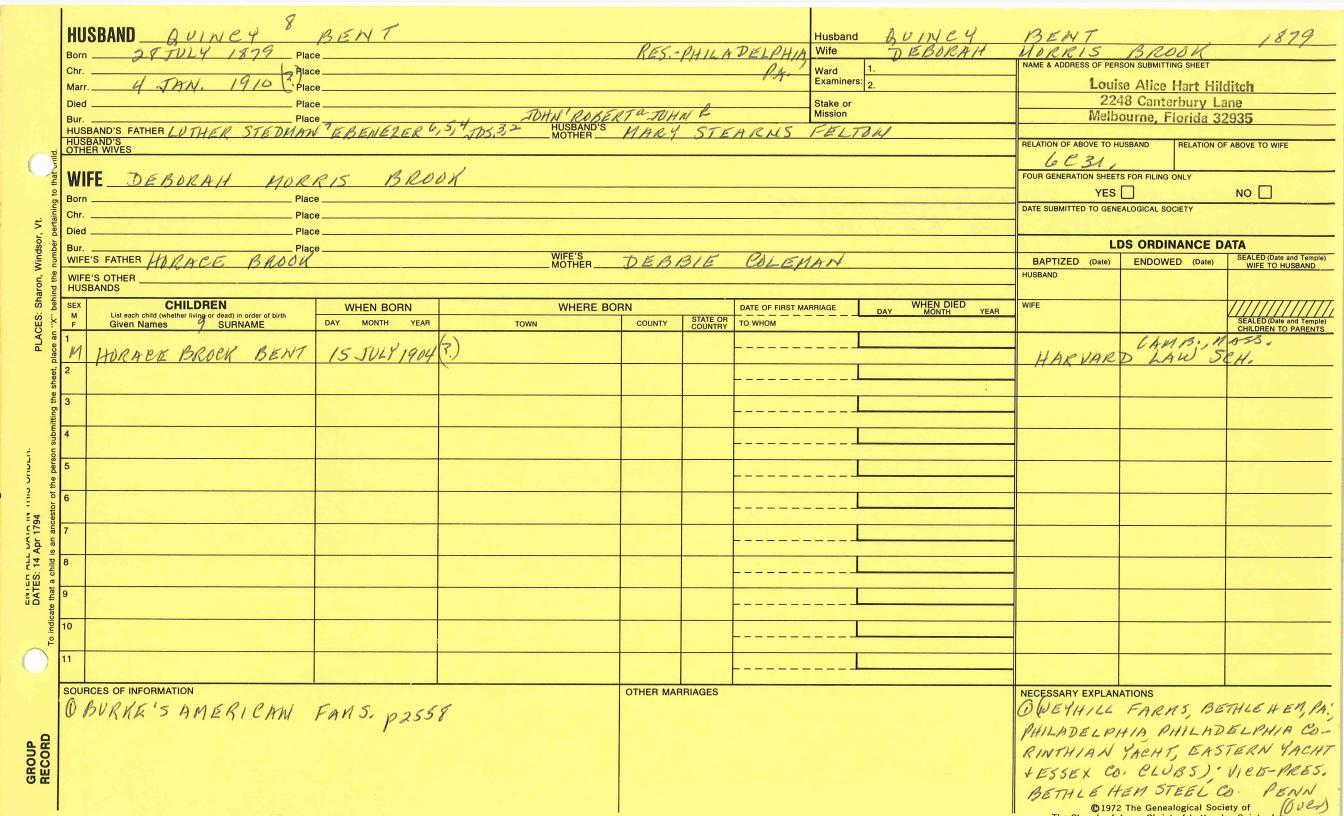 HUSBAND QUINCY 8 BENT
Born 28 JULY 1879 Place RES.-PHILADELPHIA,
Chr. Place PA.
Marr. 4 JAN. 1910 (?) Place
Died Place
Bur. Place JOHN' ROBERT JOHN
HUSBAND'S FATHER LUTHER STEDMAN 7 EBENEZER 6, 5, 4 JOS. 3, 2 HUSBAND'S MOTHER MARY STEARNS FELTON
HUSBAND'S OTHER WIVES
WIFE DEBORAH MORRIS BROOK
Born Place
Chr. Place
Died Place
Bur. Place
WIFE'S FATHER HORACE BROOK WIFE'S MOTHER DEBBIE COLEMAN
WIFE'S OTHER HUSBANDS
Husband QUINCY BENT 1879
Wife DEBORAH MORRIS BROOK
Ward Examiners: 1.
2.
Stake or Mission
NAME & ADDRESS OF PERSON SUBMITTING SHEET
Louise Alice Hart Hilditch
2248 Canterbury Lane
Melbourne, Florida 32935
RELATION OF ABOVE TO HUSBAND RELATION OF ABOVE TO WIFE
6C3L,
FOUR GENERATION SHEETS FOR FILING ONLY
YES NO
DATE SUBMITTED TO GENEALOGICAL SOCIETY
LDS ORDINANCE DATA
BAPTIZED (Date) ENDOWED (Date) SEALED (Date and Temple) WIFE TO HUSBAND
HUSBAND
WIFE
SEALED (Date and Temple) CHILDREN TO PARENTS
SEX M F CHILDREN WHEN BORN WHERE BORN DATE OF FIRST MARRIAGE WHEN DIED
List each child (whether living or dead) in order of birth
Given Names 9 SURNAME DAY MONTH YEAR TOWN COUNTY STATE OR COUNTRY TO WHOM DAY MONTH YEAR
1 CAMB., MASS.
M HORACE BROCK BENT 15 JULY 1904 (?) HARVARD LAW SCH.
2
3
4
5
6
7
8
9
10
11
SOURCES OF INFORMATION
① BURKE'S AMERICAN FAMS. p2558
OTHER MARRIAGES
NECESSARY EXPLANATIONS
① (WEYHILL FARMS, BETHLEHEM, PA;
PHILADELPHIA, PHILADELPHIA CO-
RINTHIAN YACHT, EASTERN YACHT
+ ESSEX CO. CLUBS); VICE-PRES.
BETHLEHEM STEEL CO. PENN
(over)
©1972 The Genealogical Society of
PLACES: Sharon, Windsor, Vt.
ENTER ALL DATA IN THIS ORDER:
DATES: 14 Apr 1794
To indicate that a child is an ancestor of the person submitting the sheet, place an "X" behind the number pertaining to that child.
GROUP
RECORD